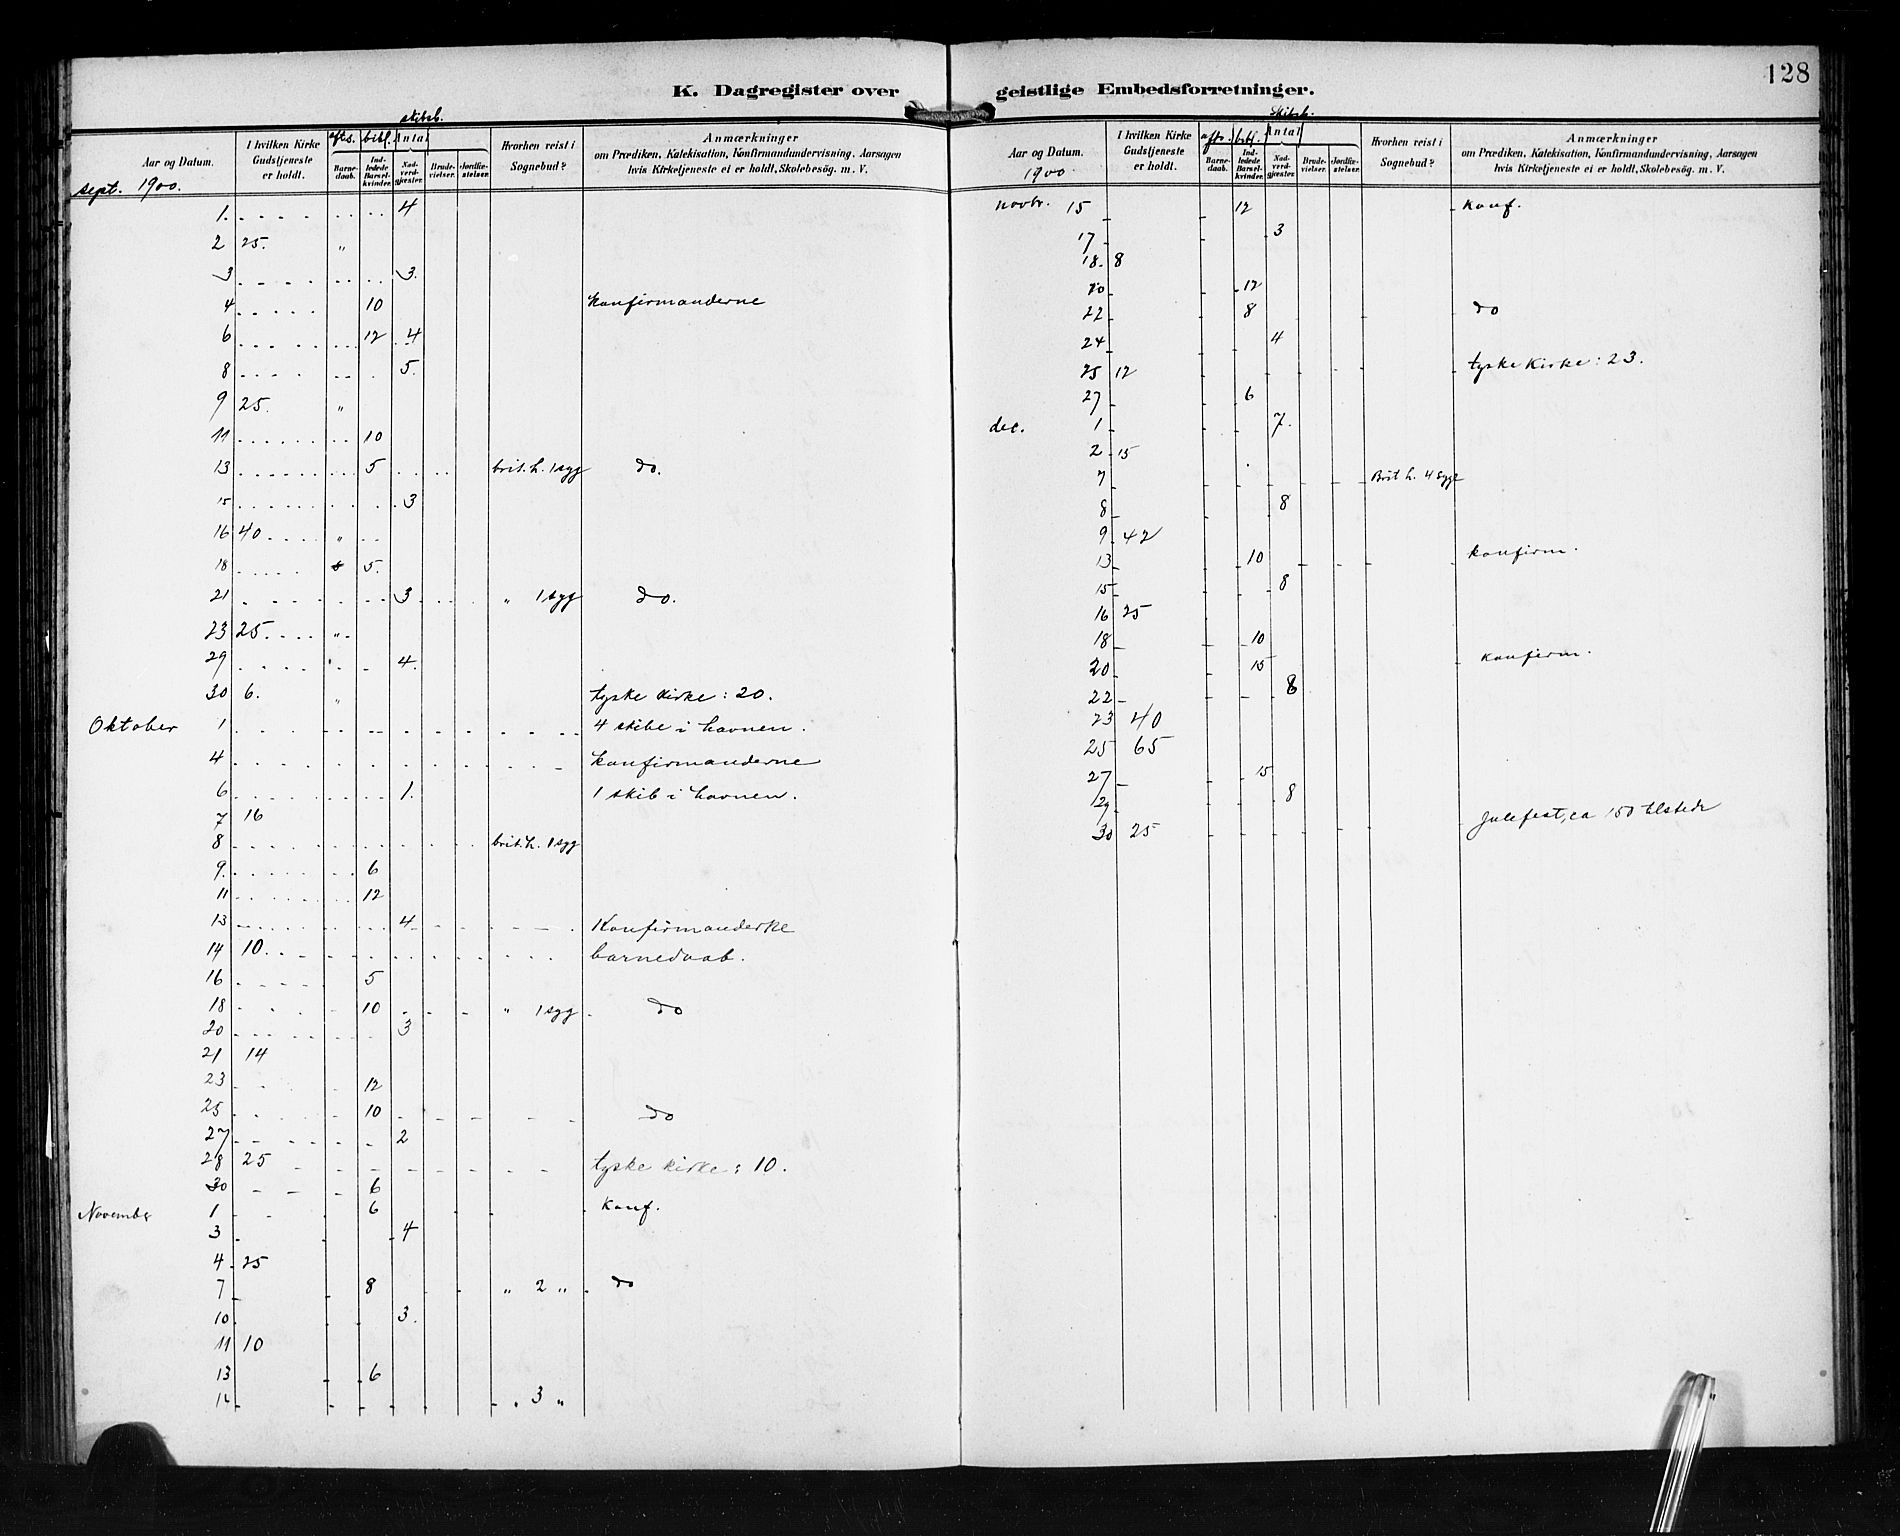 128
K. Dagregister over geistlige Embedsforretninger.
skibsb.
Aar og Datum. I hvilken Kirke Gudstjeneste er holdt. afts. bibl. Antal Barne-daab. Ind-ledede Barsel-kvinder. Nad-verd-gjæster. Brude-vielser. Jordfæ-stelser. Hvorhen reist i Sognebud? Anmærkninger om Prædiken, Katekisation, Konfirmandundervisning, Aarsagen hvis Kirketjeneste ei er holdt, Skolebesøg. m. V.
sept. 1900.
1. 4
2 25. "
3 3.
4 10 Konfirmanderne
6 12 4
8 5.
9 25. "
11 10
13 5 brit. h. 1 syg do.
15 3
16 40 "
18 5.
21 3 " 1 syg do.
23 25. "
29 4.
30 6. " tyske kirke: 20.
Oktober 1 4 skibe i havnen.
4 Konfirmanderne
6 1. 1 skib i havnen.
7 16
8 brit. h. 1 syg
9. 6
11 12
13 4 Konfirmanderne
14 10. barnedaab.
16 5
18 10 " 1 syg do
20 3
21 14
23 12
25 10 do
27 2
28 25 tyske kirke: 10.
30 6
November 1 6 Konf.
3 4
4 25
7 8 " 2 " do
10 3.
11 10
13 6
14 " 3 "
Skibsb.
Aar og Datum. I hvilken Kirke Gudstjeneste er holdt. aftr. bibl. Antal Barne-daab. Ind-ledede Barsel-kvinder. Nad-verd-gjæster. Brude-vielser. Jordfæ-stelser. Hvorhen reist i Sognebud? Anmærkninger om Prædiken, Katekisation, Konfirmandundervisning, Aarsagen hvis Kirketjeneste ei er holdt, Skolebesøg. m. V.
1900
novbr. 15 12 Konf.
17 3
18. 8
20 12
22 8 do
24 4
25 12 tyske Kirke: 23.
27 6
dec. 1 7.
2 15
7 Brit h. 4 syge
8 8
9 42
13 10 konfirm.
15 8
16 25
18 10
20 15 konfirm.
22 8
23 40
25 65
27 15
29 8
30 25 Julefest, ca 150 tilstede